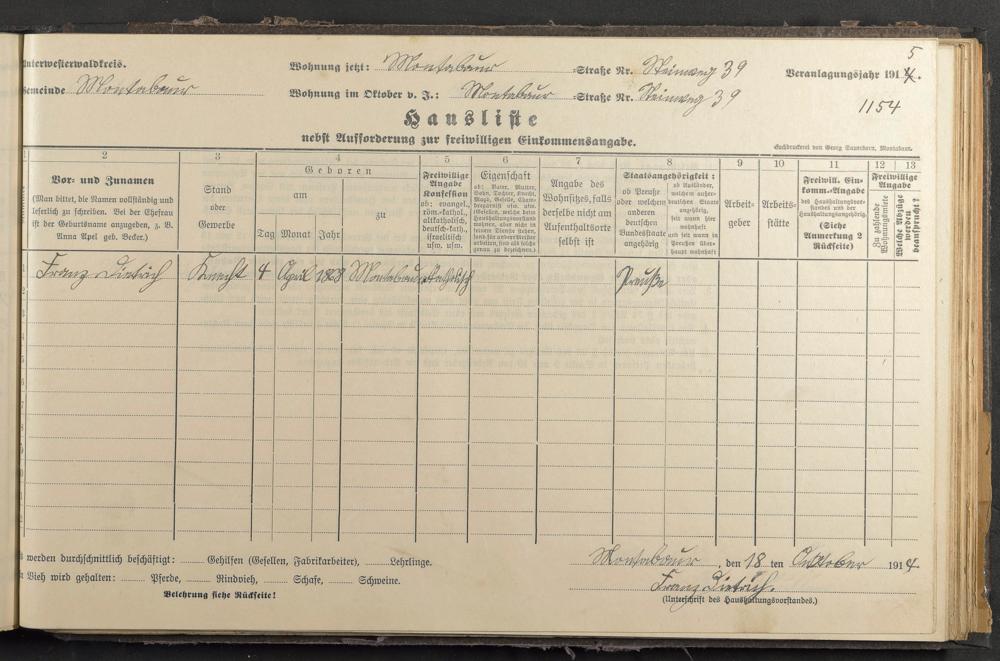 Unterwesterwaldkreis.
Gemeinde Montabaur
Wohnung jetzt: Montabaur -Straße Nr. Steinweg 39
Wohnung im Oktober v. J.: Montabaur -Straße Nr. Steinweg 39
5
Veranlagungsjahr 1914.
1154
Hausliste
nebst Aufforderung zur freiwilligen Einkommensangabe.
Buchdruckerei von Georg Sauerborn, Montabaur.
2 3 4 5 6 7 8 9 10 11 12 13
Vor- und Zunamen
(Man bittet, die Namen vollständig und
leserlich zu schreiben. Bei der Ehefrau
ist der Geburtsname anzugeben, z. B.
Anna Apel geb. Becker.)
Stand
oder
Gewerbe
Geboren
am
Tag Monat Jahr
zu
Freiwillige
Angabe
Konfession
ob: evangel.,
röm.-kathol.,
altkatholisch,
deutsch-kath.,
israelitisch
usw. usw.
Eigenschaft
ob: Vater, Mutter,
Sohn, Tochter, Knecht,
Magd, Geselle, Cham-
bregarnist usw. usw.
(Gesellen, welche beim
Haushaltungsvorstand
wohnen, aber nicht in
seinem Dienste stehen,
Angabe des
Wohnsitzes, falls
derselbe nicht am
Aufenthaltsorte
selbst ist
Staatsangehörigkeit:
ob Preuße
oder welchem
anderen
deutschen
Bundesstaate
angehörig
ob Ausländer,
welchem außer-
deutschen Staate
angehörig,
seit wann hier
wohnhaft
und seit wann in
Preußen über-
haupt wohnhaft
Arbeit-
geber
Arbeits-
stätte
Freiwill. Ein-
komm.-Angabe
des Haushaltungsvor-
standes und der
Haushaltungsangehörig.
(Siehe
Anmerkung 2
Rückseite)
Freiwillige
Angabe
Zu zahlende
Wohnungsmiete
Welche Abzüge
werden
beansprucht?
Franz Dietrich Knecht 4 April Montabaur katholisch Preuße
werden durchschnittlich beschäftigt: Gehilfen (Gesellen, Fabrikarbeiter), Lehrlinge.
Vieh wird gehalten: Pferde, Rindvieh, Schafe, Schweine.
Belehrung siehe Rückseite!
Montabaur, den 18 ten Oktober 1914
Franz Dietrich.
(Unterschrift des Haushaltungsvorstandes.)